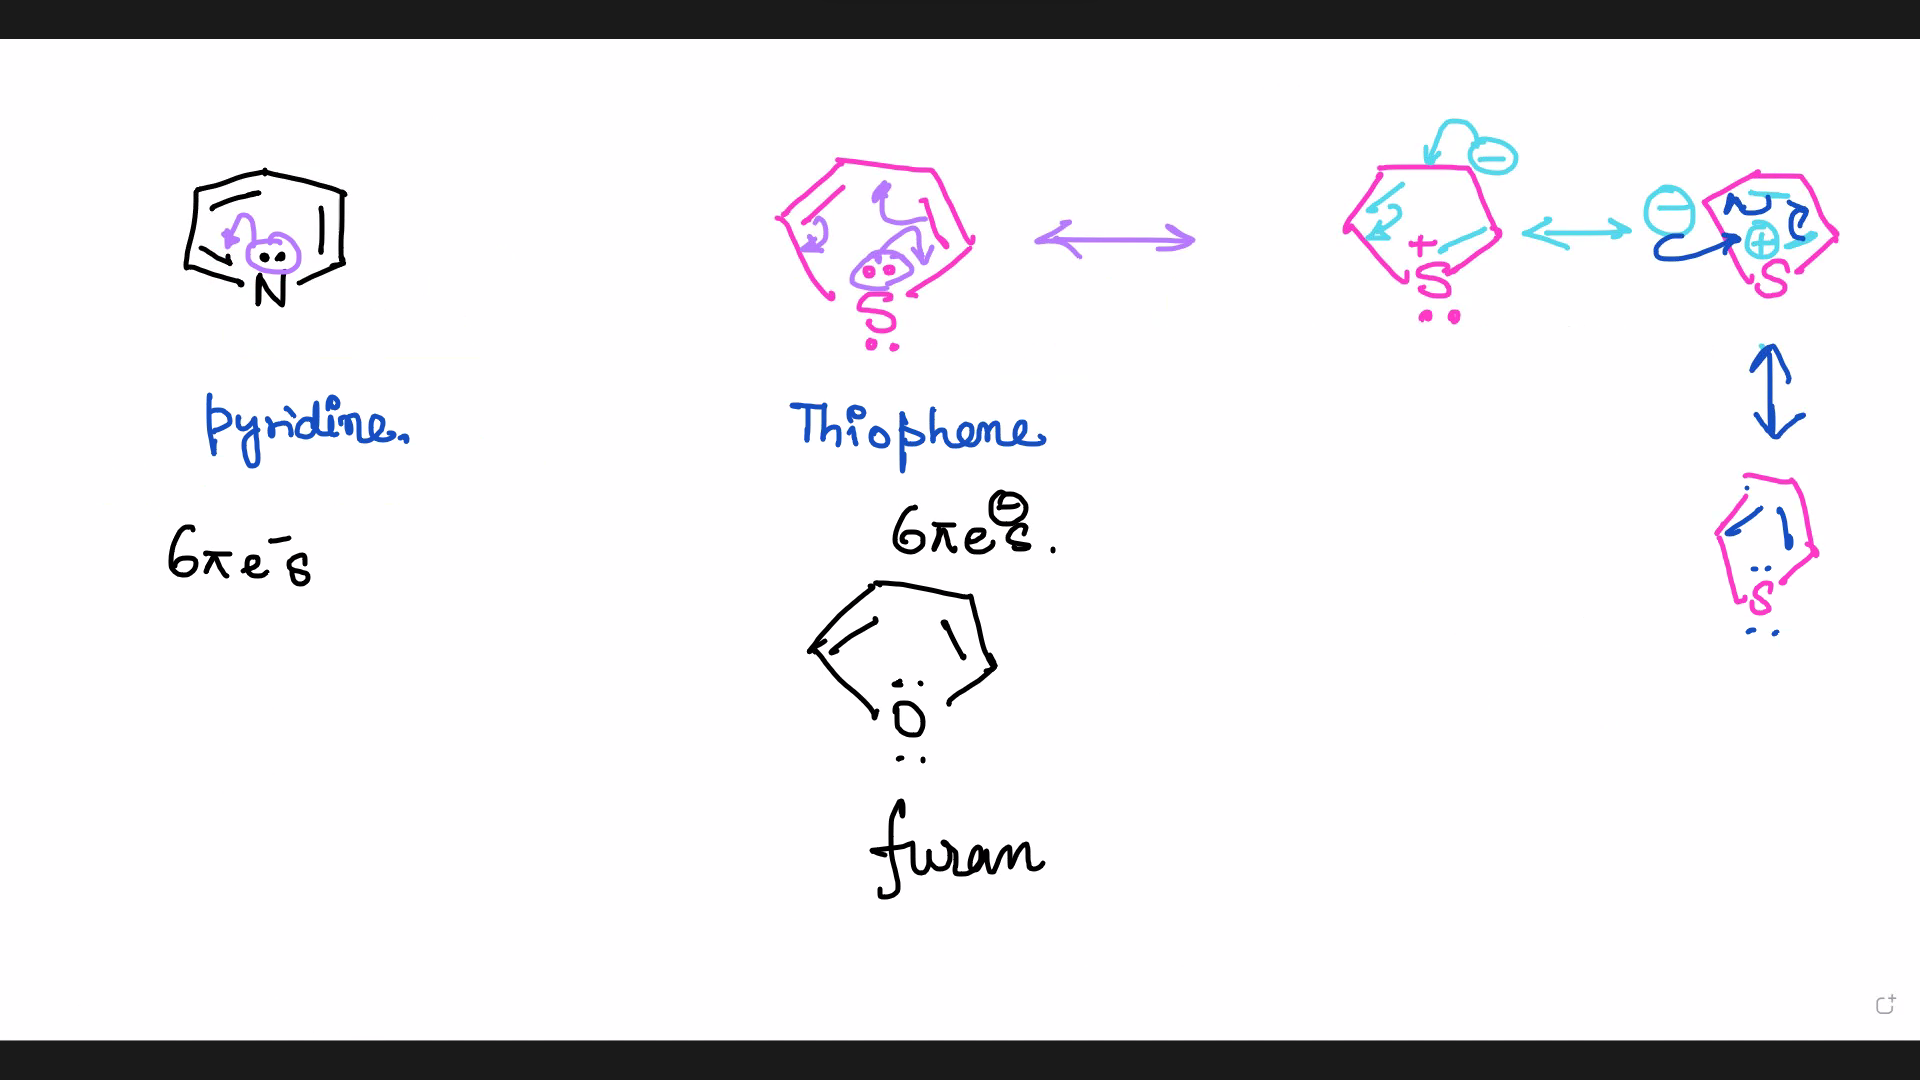 N
pyridine.
6πe⁻s
S
Thiophene
6πe⊖s.
O
furan
⊖
+
S
⊖
⊕
S
S